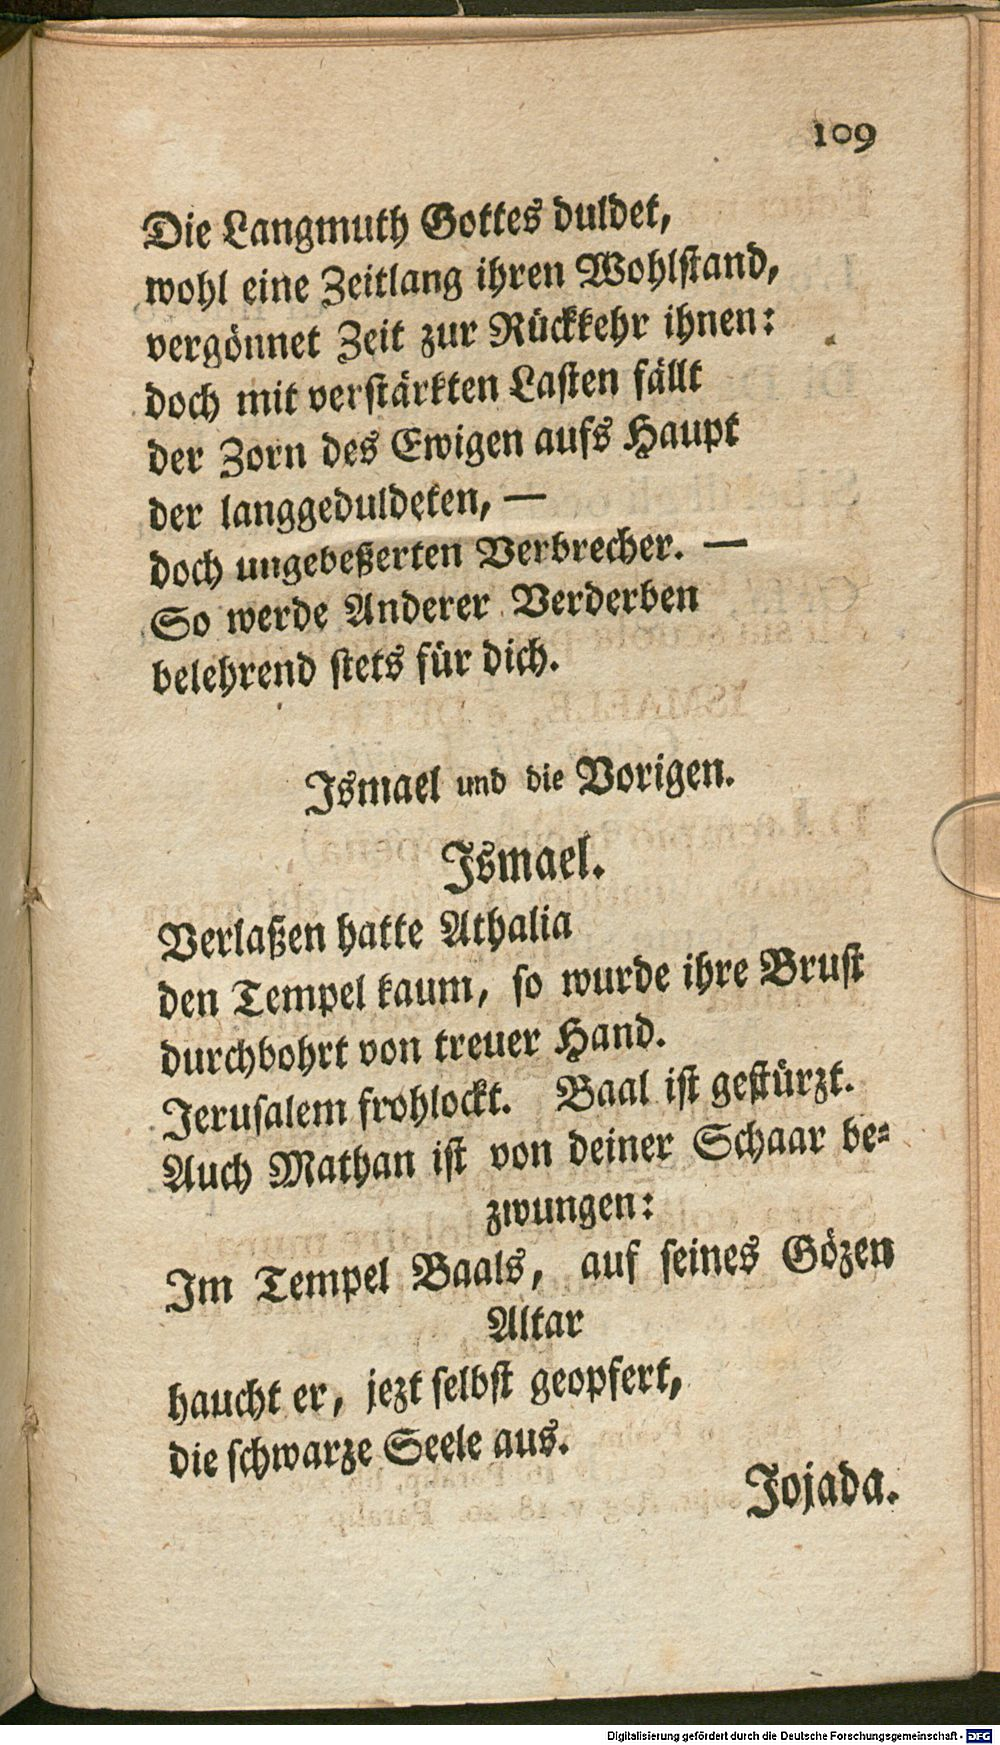 109
Die Langmuth Gottes duldet,
wohl eine Zeitlang ihren Wohlstand,
vergönnet Zeit zur Rückkehr ihnen:
doch mit verstärkten Lasten fällt
der Zorn des Ewigen aufs Haupt
der langgeduldeten, —
doch ungebeßerten Verbrecher. —
So werde Anderer Verderben
belehrend stets für dich.
Ismael und die Vorigen.
Ismael.
Verlaßen hatte Athalia
den Tempel kaum, so wurde ihre Brust
durchbohrt von treuer Hand.
Jerusalem frohlockt. Baal ist gestürzt.
Auch Mathan ist von deiner Schaar be-
zwungen:
Im Tempel Baals, auf seines Gözen
Altar
haucht er, jezt selbst geopfert,
die schwarze Seele aus.
Jojada.
Digitalisierung gefördert durch die Deutsche Forschungsgemeinschaft - DFG